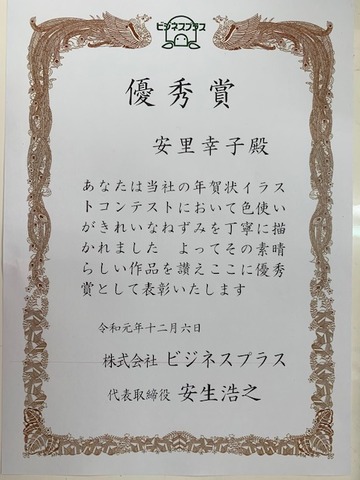 ビジネスプラス
優秀賞
安里幸子殿
あなたは当社の年賀状イラス
トコンテストにおいて色使い
がきれいなねずみを丁寧に描
かれました　よってその素晴
らしい作品を讃えここに優秀
賞として表彰いたします
令和元年十二月六日
株式会社 ビジネスプラス
代表取締役 安生浩之